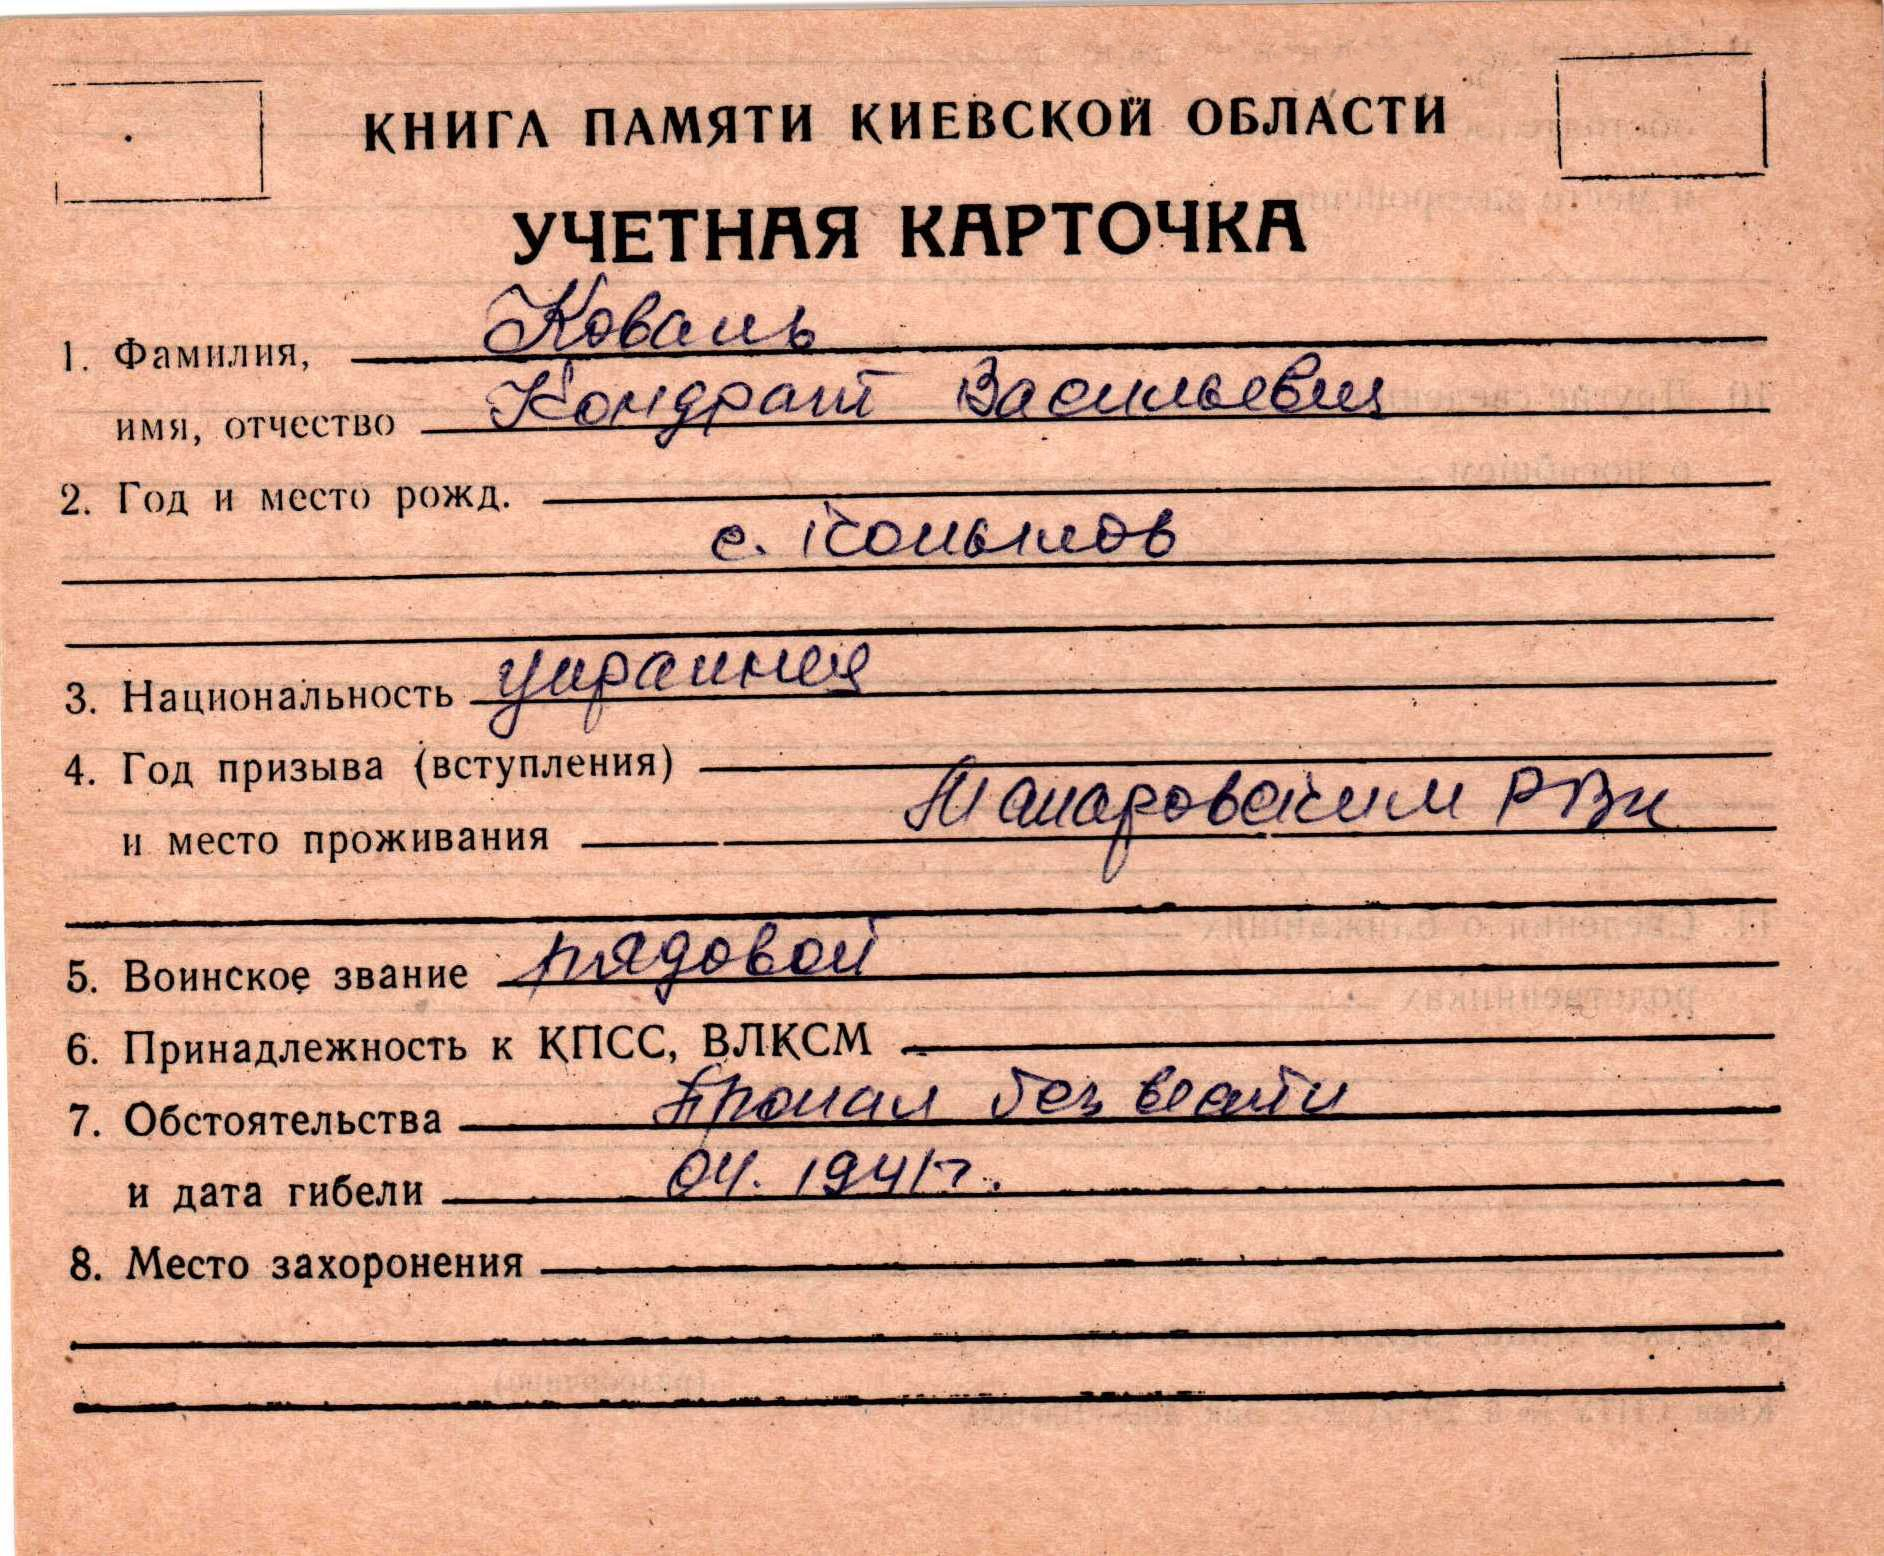 КНИГА ПАМЯТИ КИЕВСКОЙ ОБЛАСТИ
УЧЕТНАЯ КАРТОЧКА
1. Фамилия, Коваль
имя, отчество Кондрат Васильевич
2. Год и место рожд.
с. Копылов
3. Национальность украинец
4. Год призыва (вступления)
и место проживания Макаровским РВк
5. Воинское звание рядовой
6. Принадлежность к КПСС, ВЛКСМ
7. Обстоятельства Пропал без вести
и дата гибели 04. 1941г.
8. Место захоронения